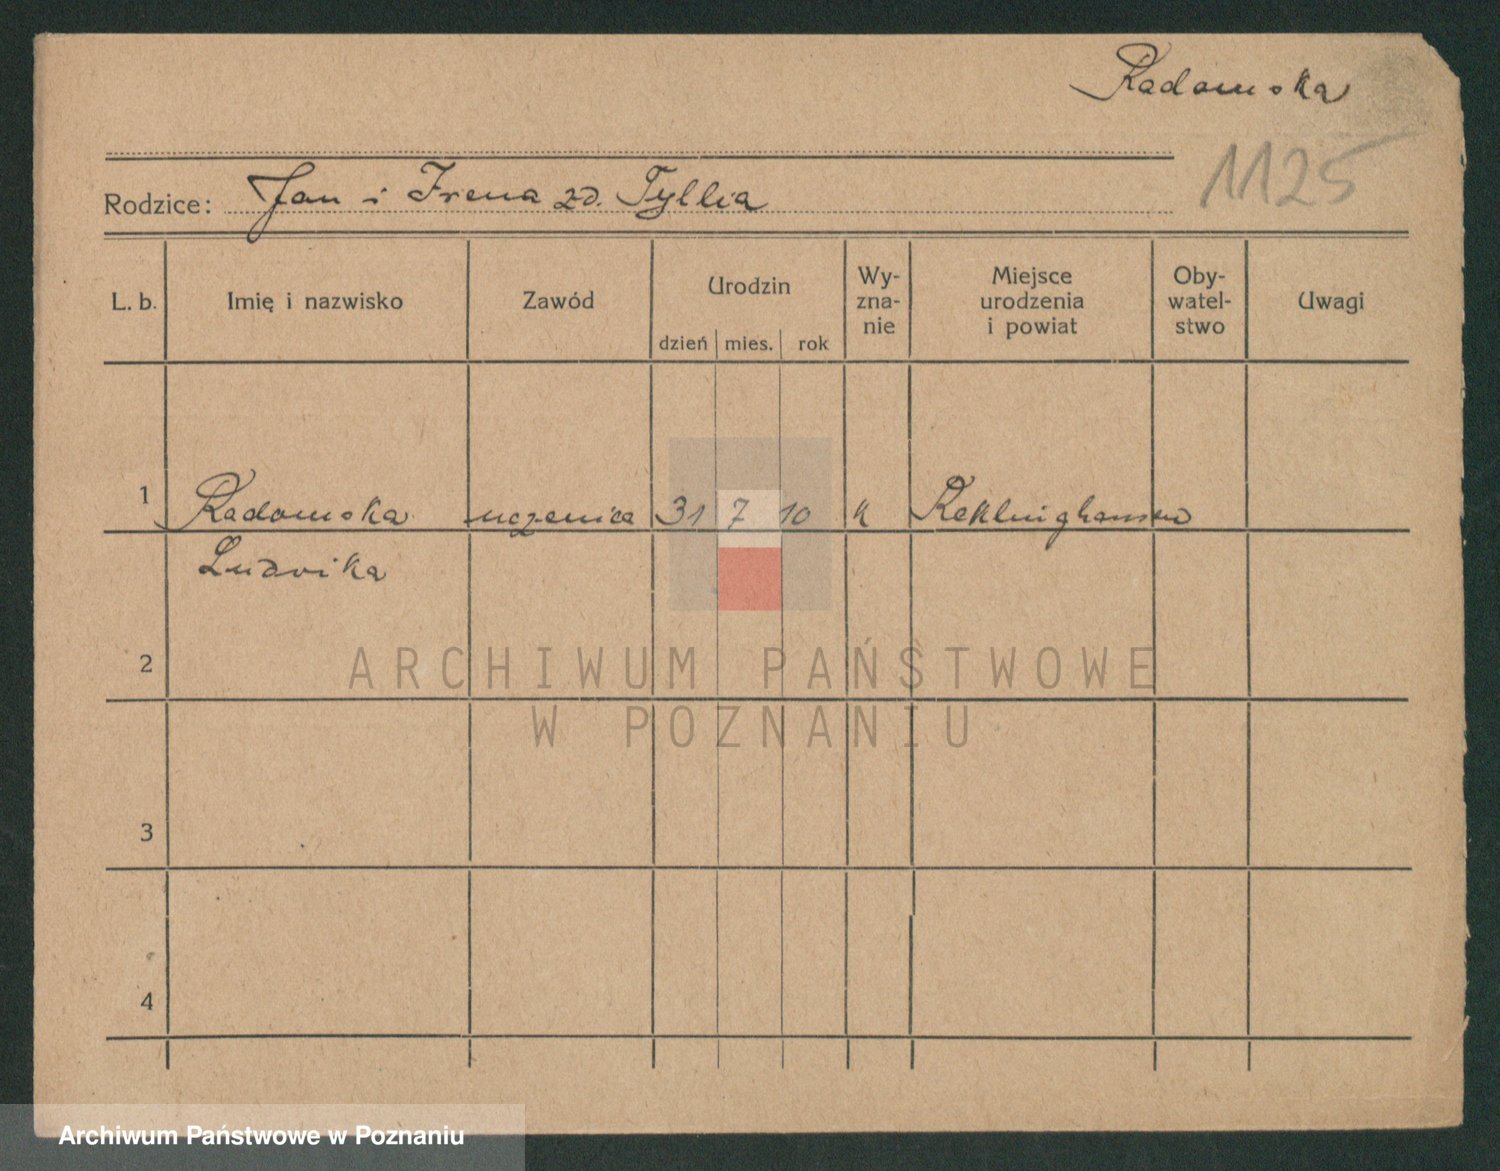 Radomska
1125
Rodzice: Jan i Irena zd. Tyllia
L. b. Imię i nazwisko Zawód Urodzin dzień mies. rok Wy-zna-nie Miejsce urodzenia i powiat Oby-watel-stwo Uwagi
1 Radomska uczenica 31 7 10 k Reklinghausen
Ludvika
2
ARCHIWUM PAŃSTWOWE
W POZNANIU
3
4
Archiwum Państwowe w Poznaniu